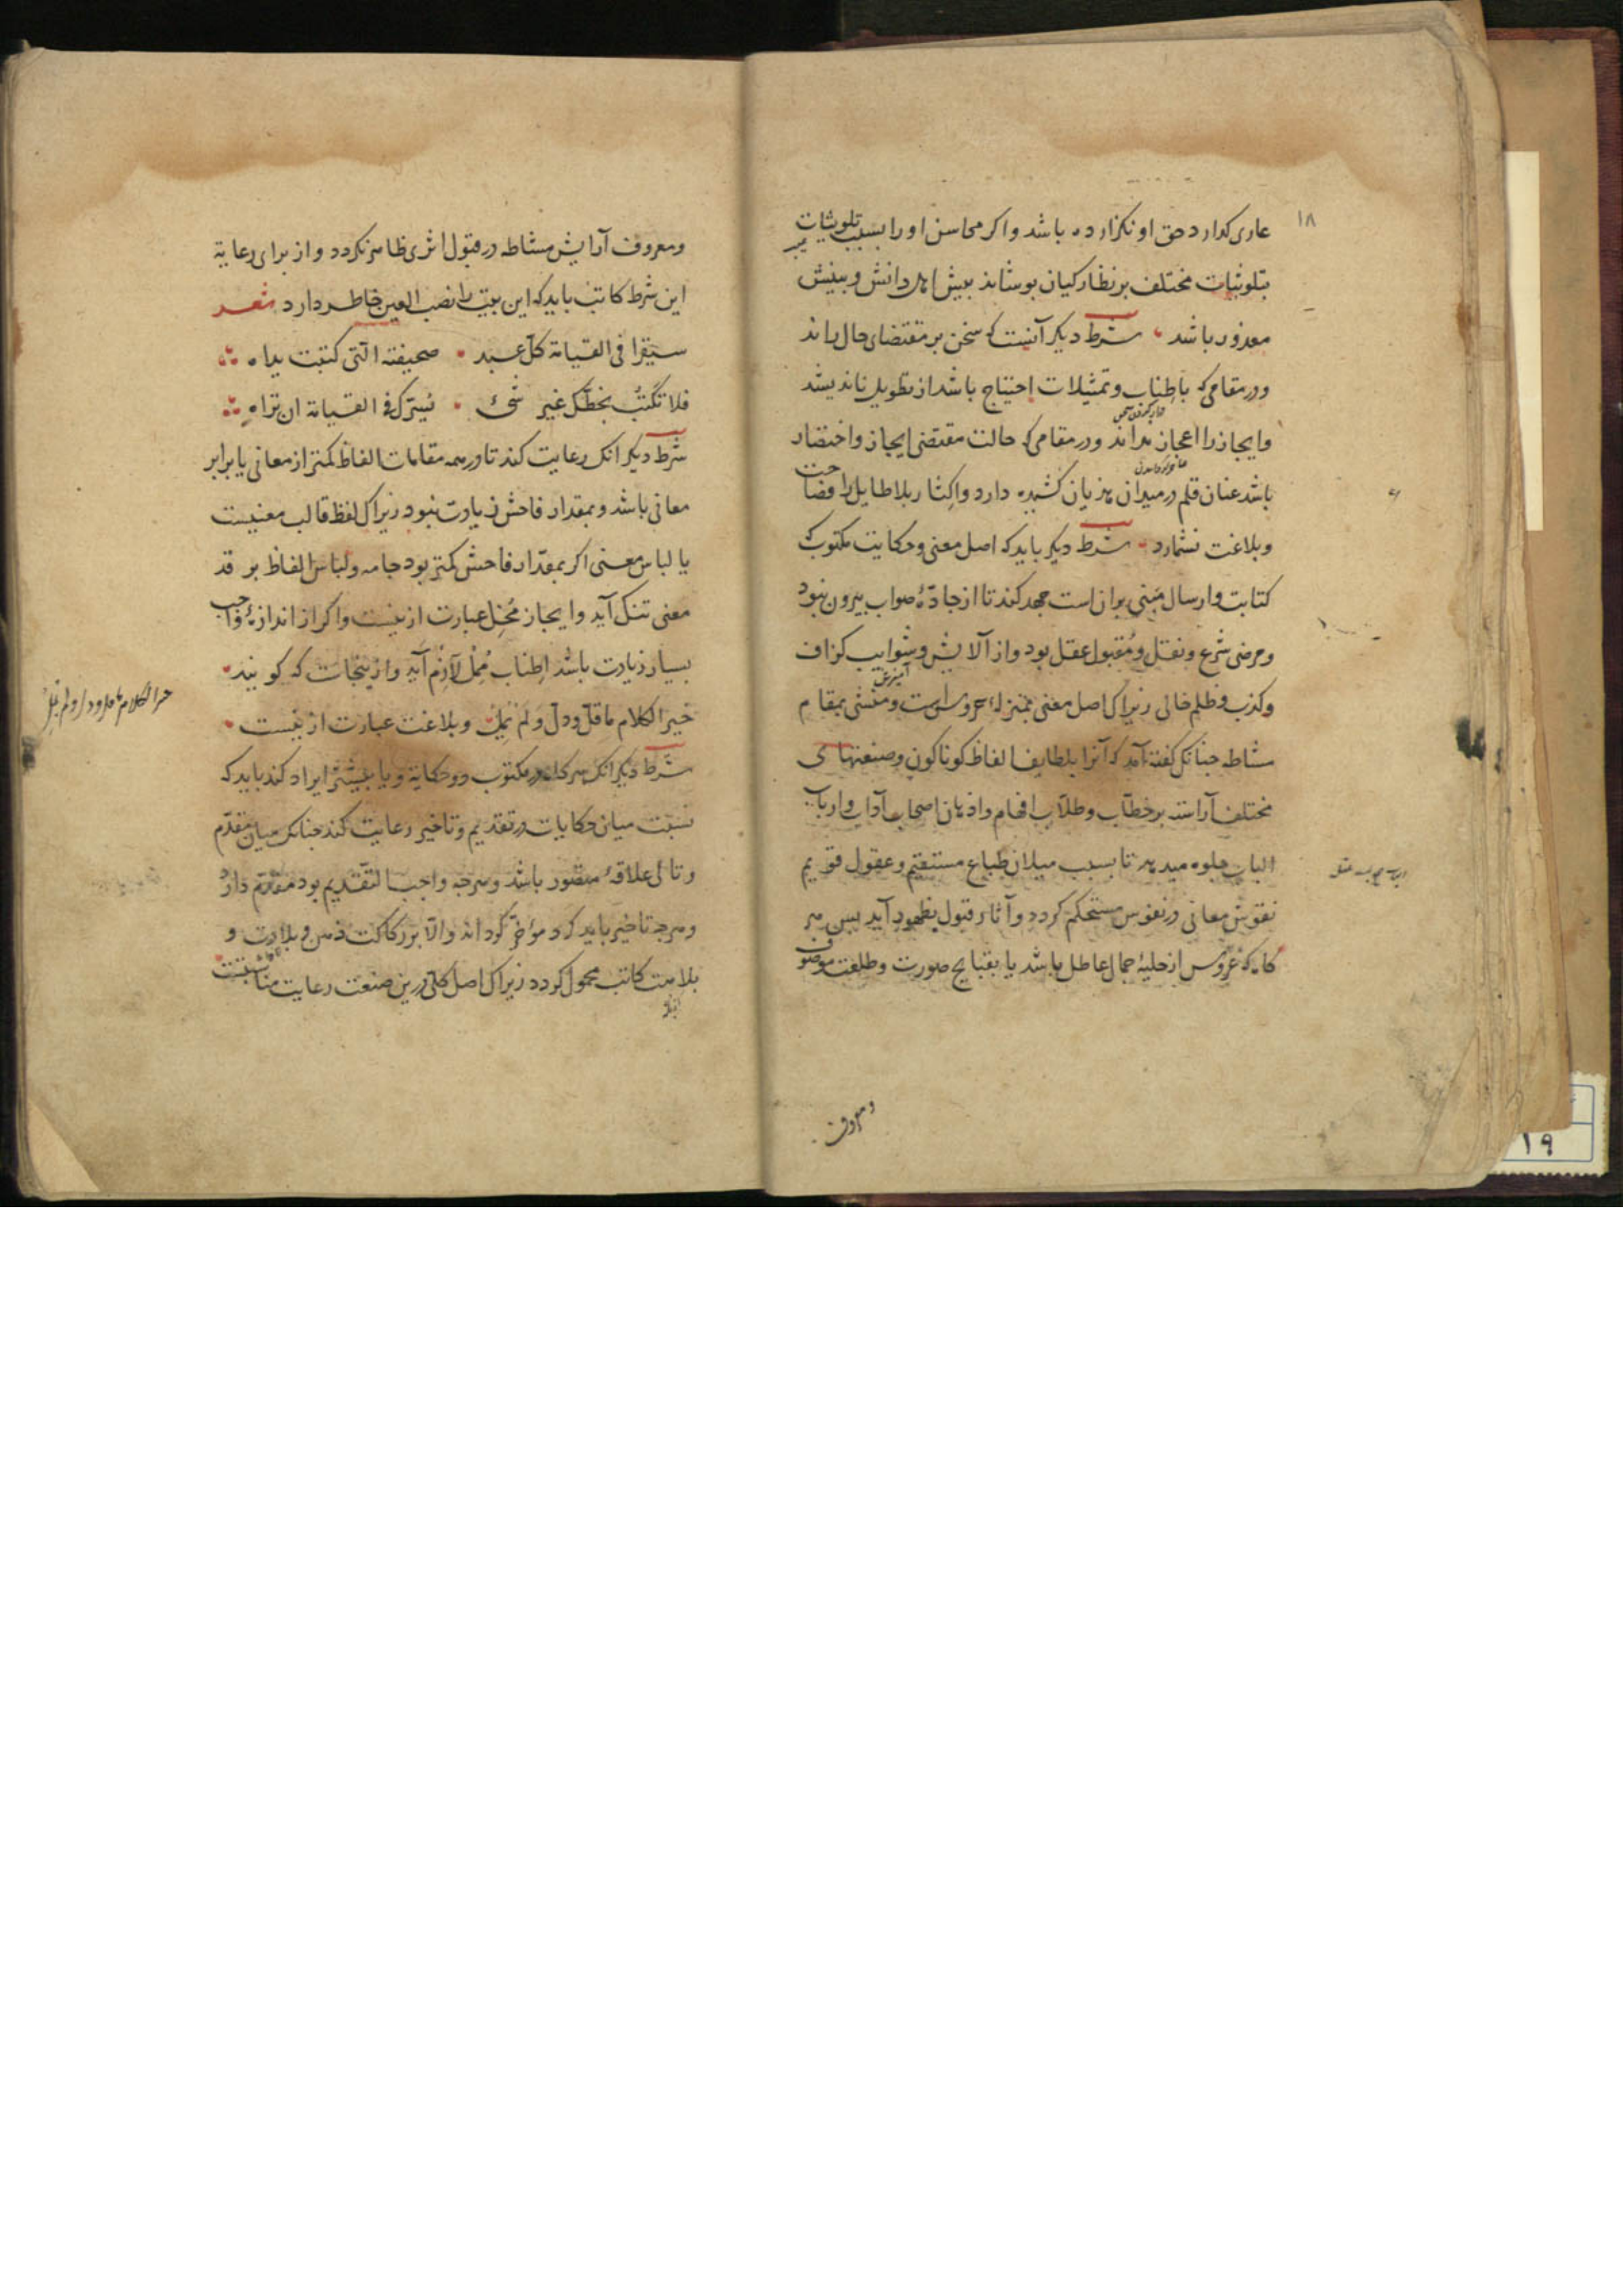 ۱۸
عاری کذارد حق او نکزارده باشد واکر محاسن او را بسبب تلوینات
بتلوینات مختلف بر نظارکیان بوشاند بیش اهل دانش و بینش
معذور باشد شرط دیکر آنست که سخن بر مقتضای حال راند
ودر مقامی که باطناب وتمثیلات احتیاج باشد از تطویل ناندیشد
وایجاز را اعجاز نداند ودر مقامی که حالت مقتضی ایجاز واختصار
باشد عنان قلم در میدان هذیان کشیده دارد واکثار بلا طایل را فصاحت
وبلاغت نشمارد شرط دیکر باید که اصل معنی وحکایت مکتوب که
کتابت وارسال مبنی بران است جهد کند تا از جادّهٔ صواب بیرون نبود
ومرضی شرع ونقل ومقبول عقل بود واز آلایش وشوایب کزاف
وکذب وظلم خالی زیراک اصل معنی بمنزلهٔ عروس است ومنشی بمقام
مشاطه جنانک کفته آمد که آنرا بلطایف الفاظ کوناکون وصنعتهای
مختلف آراسته بر خطّاب وطلّاب افهام واذهان اصحاب آداب وارباب
الباب جلوه میدهد تا بسبب میلان طباع مستقیم وعقول قویم
نقوش معانی در نفوس مستحکم کردد وآثار قبول بظهور آید بس هر
کاه که عروس از حلیهٔ جمال عاطل باشد یا بقبایح صورت وطلعت موصوف
ومعروف
ومعروف آرایش مشاطه در قبول اثری ظاهر نکردد واز برای رعایة
این شرط کاتب باید که این بیت را نصب العین خاطر دارد شعر
سیقرا فی القیامة کلّ عبد صحیفته الّتی کتبت یداه
فلا تکتب بخطّک غیر شیٔ یسرّک فی القیامة ان تراه
شرط دیکر آنک رعایت کند تا در همه مقامات الفاظ کمتر از معانی یا برابر
معانی باشد وبمقدار فاحش زیادت نبود زیراک لفظ قالب معنیست
یا لباس معنی اکر بمقدار فاحش کمتر بود جامه ولباس الفاظ بر قد
معنی تنک آید وایجاز مُخِل عبارت ازینست واکر از اندازهٔ واجب
بسیار زیادت باشد اِطناب مُمِل لازم آید وازینجاست که کویند
خیر الکلام ما قلّ ودلّ ولم یُمِلّ وبلاغت عبارت ازینست
شرط دیکر آنک هر کاه در مکتوب دو حکایة ویا بیشتر ایراد کند باید که
نسبت میان حکایات در تقدیم وتاخیر رعایت کند جنانک میان مقدّم
وتالی علاقهٔ متصور باشد وهرجه واجب التقدیم بود مقدّم دارد
وهرجه تاخیر باید کرد مؤخّر کرداند والّا بر رکاکت ذهن وبلادت و
بلاهت کاتب محمول کردد زیراک اصل کلّی درین صنعت رعایت مناسبتست
خیر الکلام ما قل ودل ولم یمل